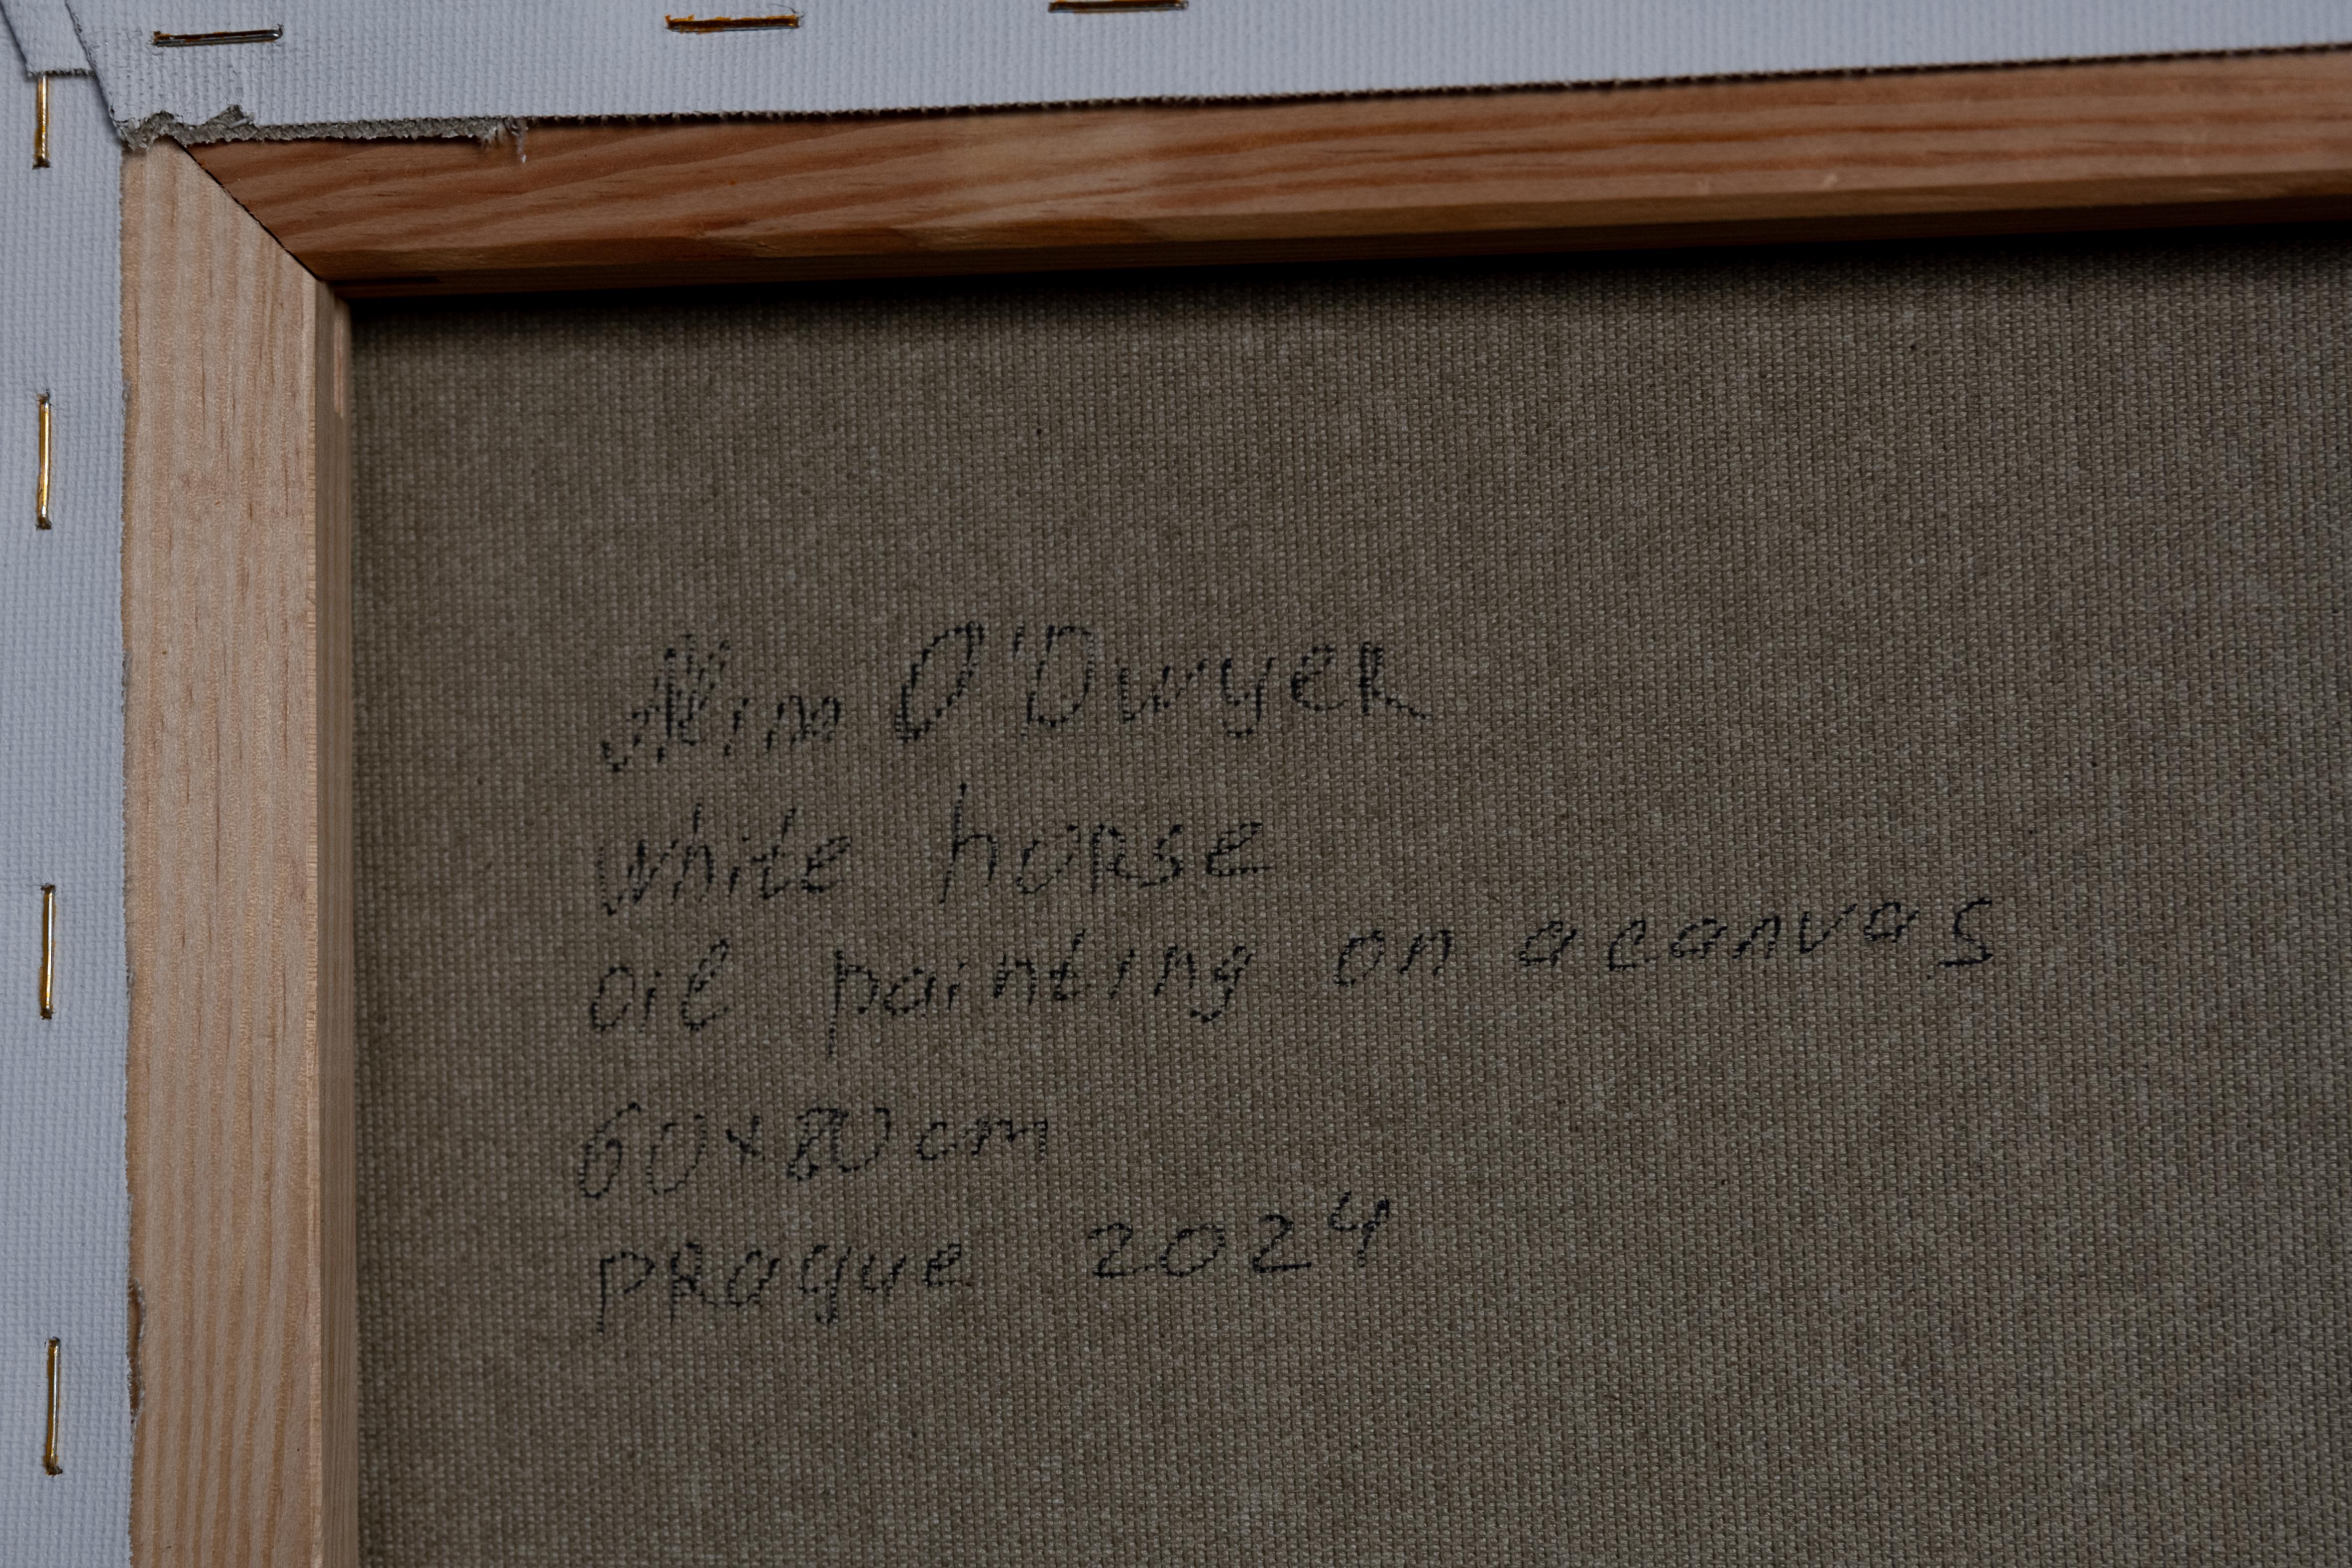 Nim O'Dwyer
white horse
oil painting on a canvas
60x80 cm
prague 2024